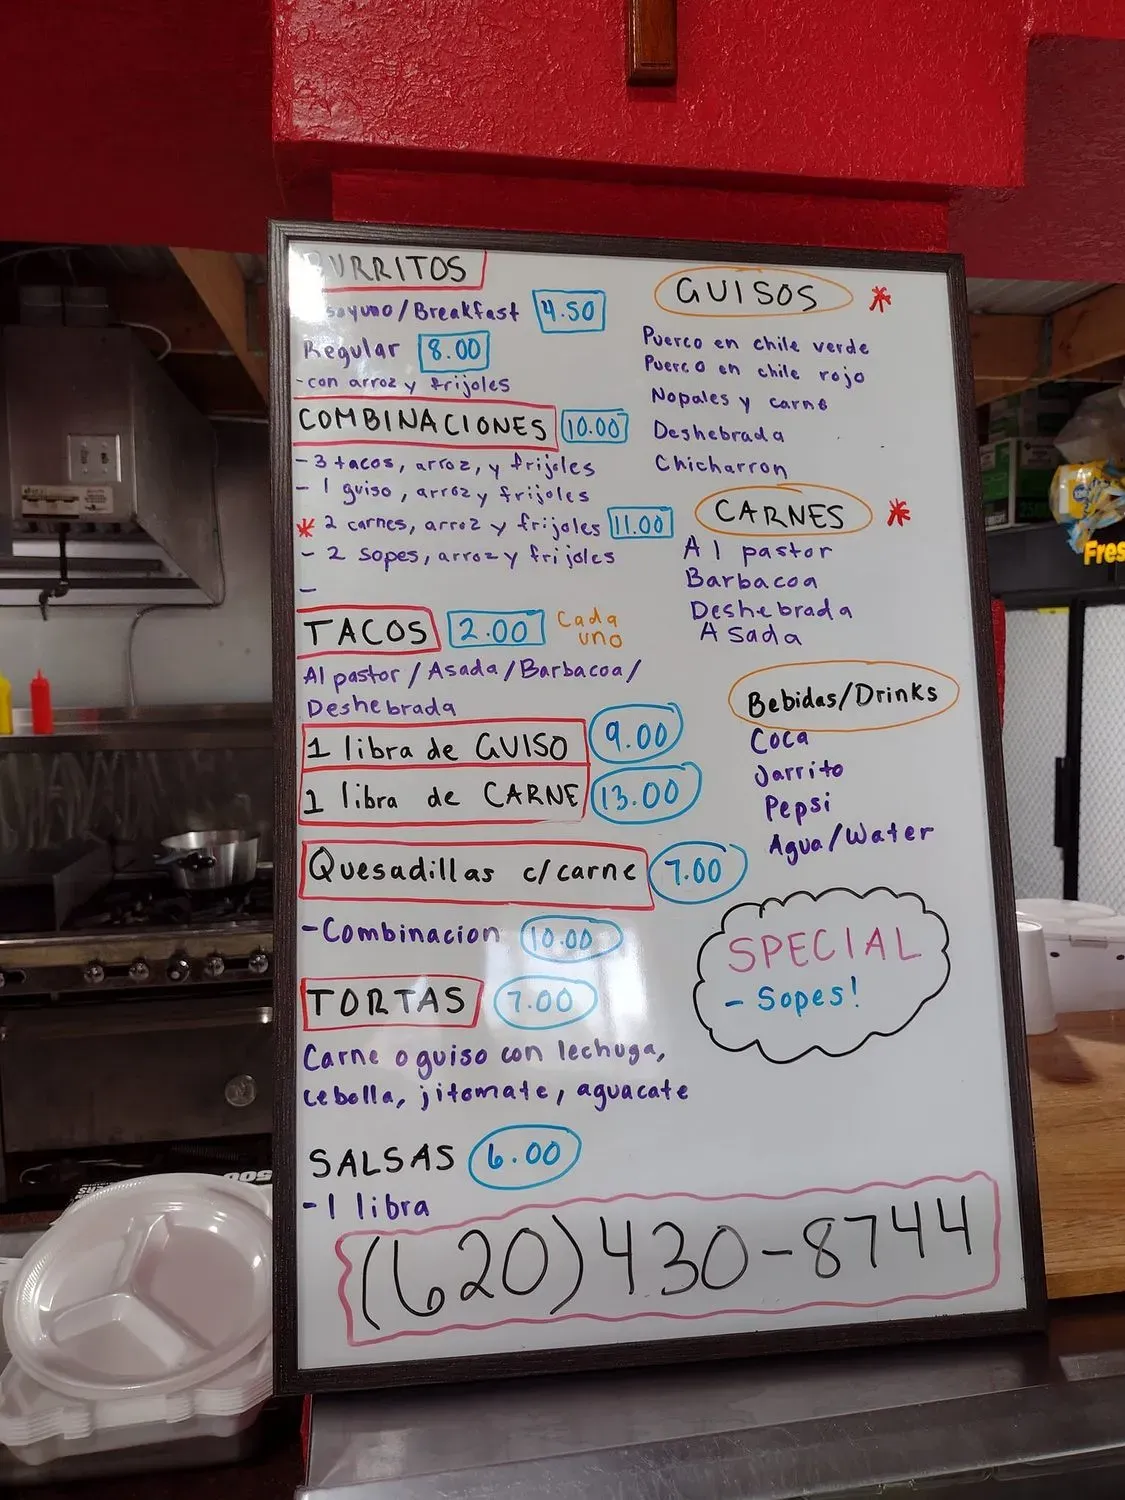 BURRITOS
sayuno/Breakfast 4.50
Regular 8.00
-con arroz y frijoles
COMBINACIONES 10.00
- 3 tacos, arroz, y frijoles
- 1 guiso, arroz y frijoles
* 2 carnes, arroz y frijoles 11.00
- 2 sopes, arroz y frijoles
-
TACOS 2.00 Cada uno
Al pastor / Asada / Barbacoa /
Deshebrada
1 libra de GUISO 9.00
1 libra de CARNE 13.00
Quesadillas c/carne 7.00
-Combinacion 10.00
TORTAS 7.00
Carne o guiso con lechuga,
cebolla, jitomate, aguacate
SALSAS 6.00
-1 libra
GUISOS *
Puerco en chile verde
Puerco en chile rojo
Nopales y carne
Deshebrada
Chicharron
CARNES *
Al pastor
Barbacoa
Deshebrada
Asada
Bebidas/Drinks
Coca
Jarrito
Pepsi
Agua/Water
SPECIAL
- Sopes!
(620)430-8744
Fres